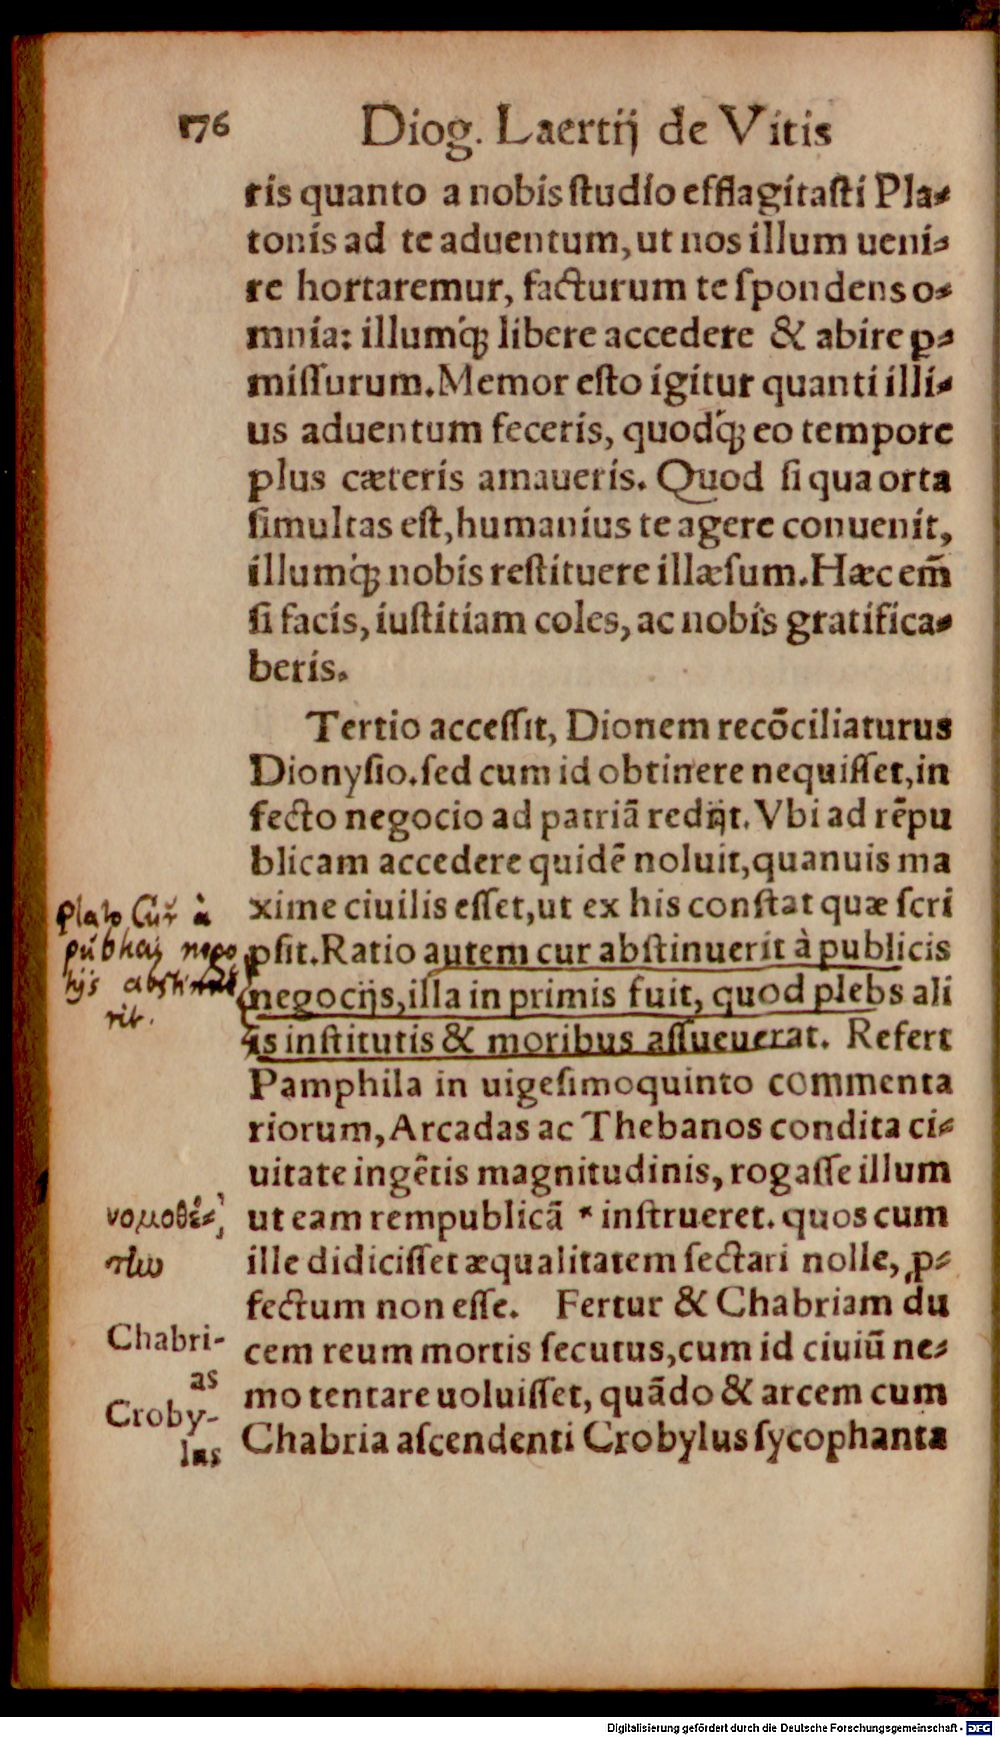 176 Diog. Laertij de Vitis
ris quanto a nobis ſtudio efflagitaſti Pla-
tonis ad te aduentum, ut nos illum ueni-
re hortaremur, facturum te ſpondens o-
mnia: illumq́ꝫ libere accedere & abire ꝑ-
miſſurum. Memor eſto igitur quanti illi-
us aduentum feceris, quodq́ꝫ eo tempore
plus cæteris amaueris. Quod ſi qua orta
ſimultas eſt, humanius te agere conuenit,
illumq́ꝫ nobis reſtituere illæſum. Hæc em̃
ſi facis, iuſtitiam coles, ac nobis gratifica-
beris.
Tertio acceſſit, Dionem recõciliaturus
Dionyſio. ſed cum id obtinere nequiſſet, in
fecto negocio ad patriã redijt. Vbi ad rẽpu
blicam accedere quidẽ noluit, quanuis ma
xime ciuilis eſſet, ut ex his conſtat quæ ſcri
pſit. Ratio autem cur abſtinuerit à publicis
negocijs, illa in primis fuit, quod plebs ali
is inſtitutis & moribus aſſueuerat. Refert
Pamphila in uigeſimoquinto commenta
riorum, Arcadas ac Thebanos condita ci-
uitate ingẽtis magnitudinis, rogaſſe illum
ut eam rempublicã * inſtrueret. quos cum
ille didiciſſet æqualitatem ſectari nolle, ꝓ-
fectum non eſſe. Fertur & Chabriam du
cem reum mortis ſecutus, cum id ciuiũ ne-
mo tentare uoluiſſet, quãdo & arcem cum
Chabria aſcendenti Crobylus ſycophanta
Plato Cur à
publicis nego
tijs abstinue
rit.
νομοθέ-
την
Chabri-
as
Croby-
lus
Digitalisierung gefördert durch die Deutsche Forschungsgemeinschaft - DFG